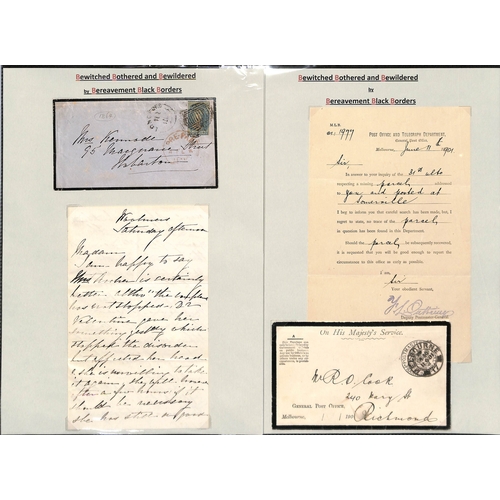 Bewitched Bothered and Bewildered
by Bereavement Black Borders
Mrs Kermode
95 Macquarie Street
Hobarton
Saturday afternoon
Madam
I am happy to say
is certainly
better altho' the
was not stopped. Dr
Valentine gave her
something yesterday which
stopped the disorder
but affected her head
& she is unwilling to take
it again. She will however
after a few hours if it
should be necessary
she has still a
Bewitched Bothered and Bewildered
by
Bereavement Black Borders
M.L.B.
01/1977
POST OFFICE AND TELEGRAPH DEPARTMENT,
General Post Office,
Melbourne, June 11 1901
Sir,
In answer to your inquiry of the 31st ulto
respecting a missing parcel addressed
to you and posted at
Somerville
I beg to inform you that careful search has been made, but, I
regret to state, no trace of the parcel
in question has been found in this Department.
Should the parcel be subsequently received,
it is requested you will be good enough to report the
circumstance to this office as early as possible.
I am
Sir
Your obedient Servant,
Deputy Postmaster-General.
On His Majesty's Service.
MELBOURNE
Mr R. O. Cock
240 Mary St
GENERAL POST OFFICE,
Melbourne, / / 190
Richmond